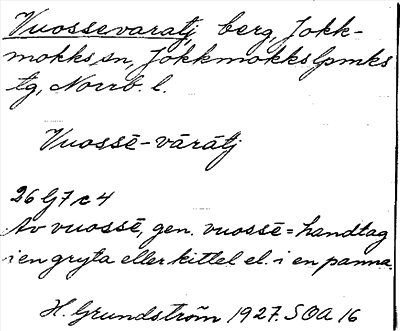 Vuossevaratj, berg, Jokk-
mokks sn, Jokkmokks lpmks
tg, Norrb. l.
Vuossē-vārātj
26 G7 c 4
Av vuossē, gen. vuossē = handtag
i en gryta eller kittel el. i en panna.
H. Grundström 1927. SOA 16